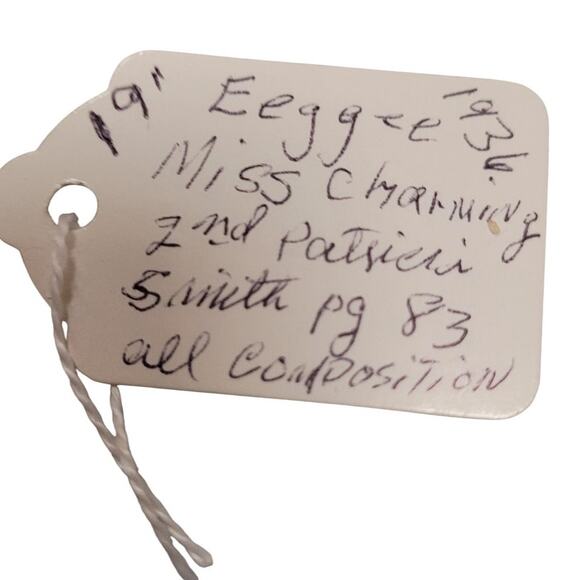 19" Eeggee 1936
Miss Charming
2nd Patricia
Smith pg 83
all composition